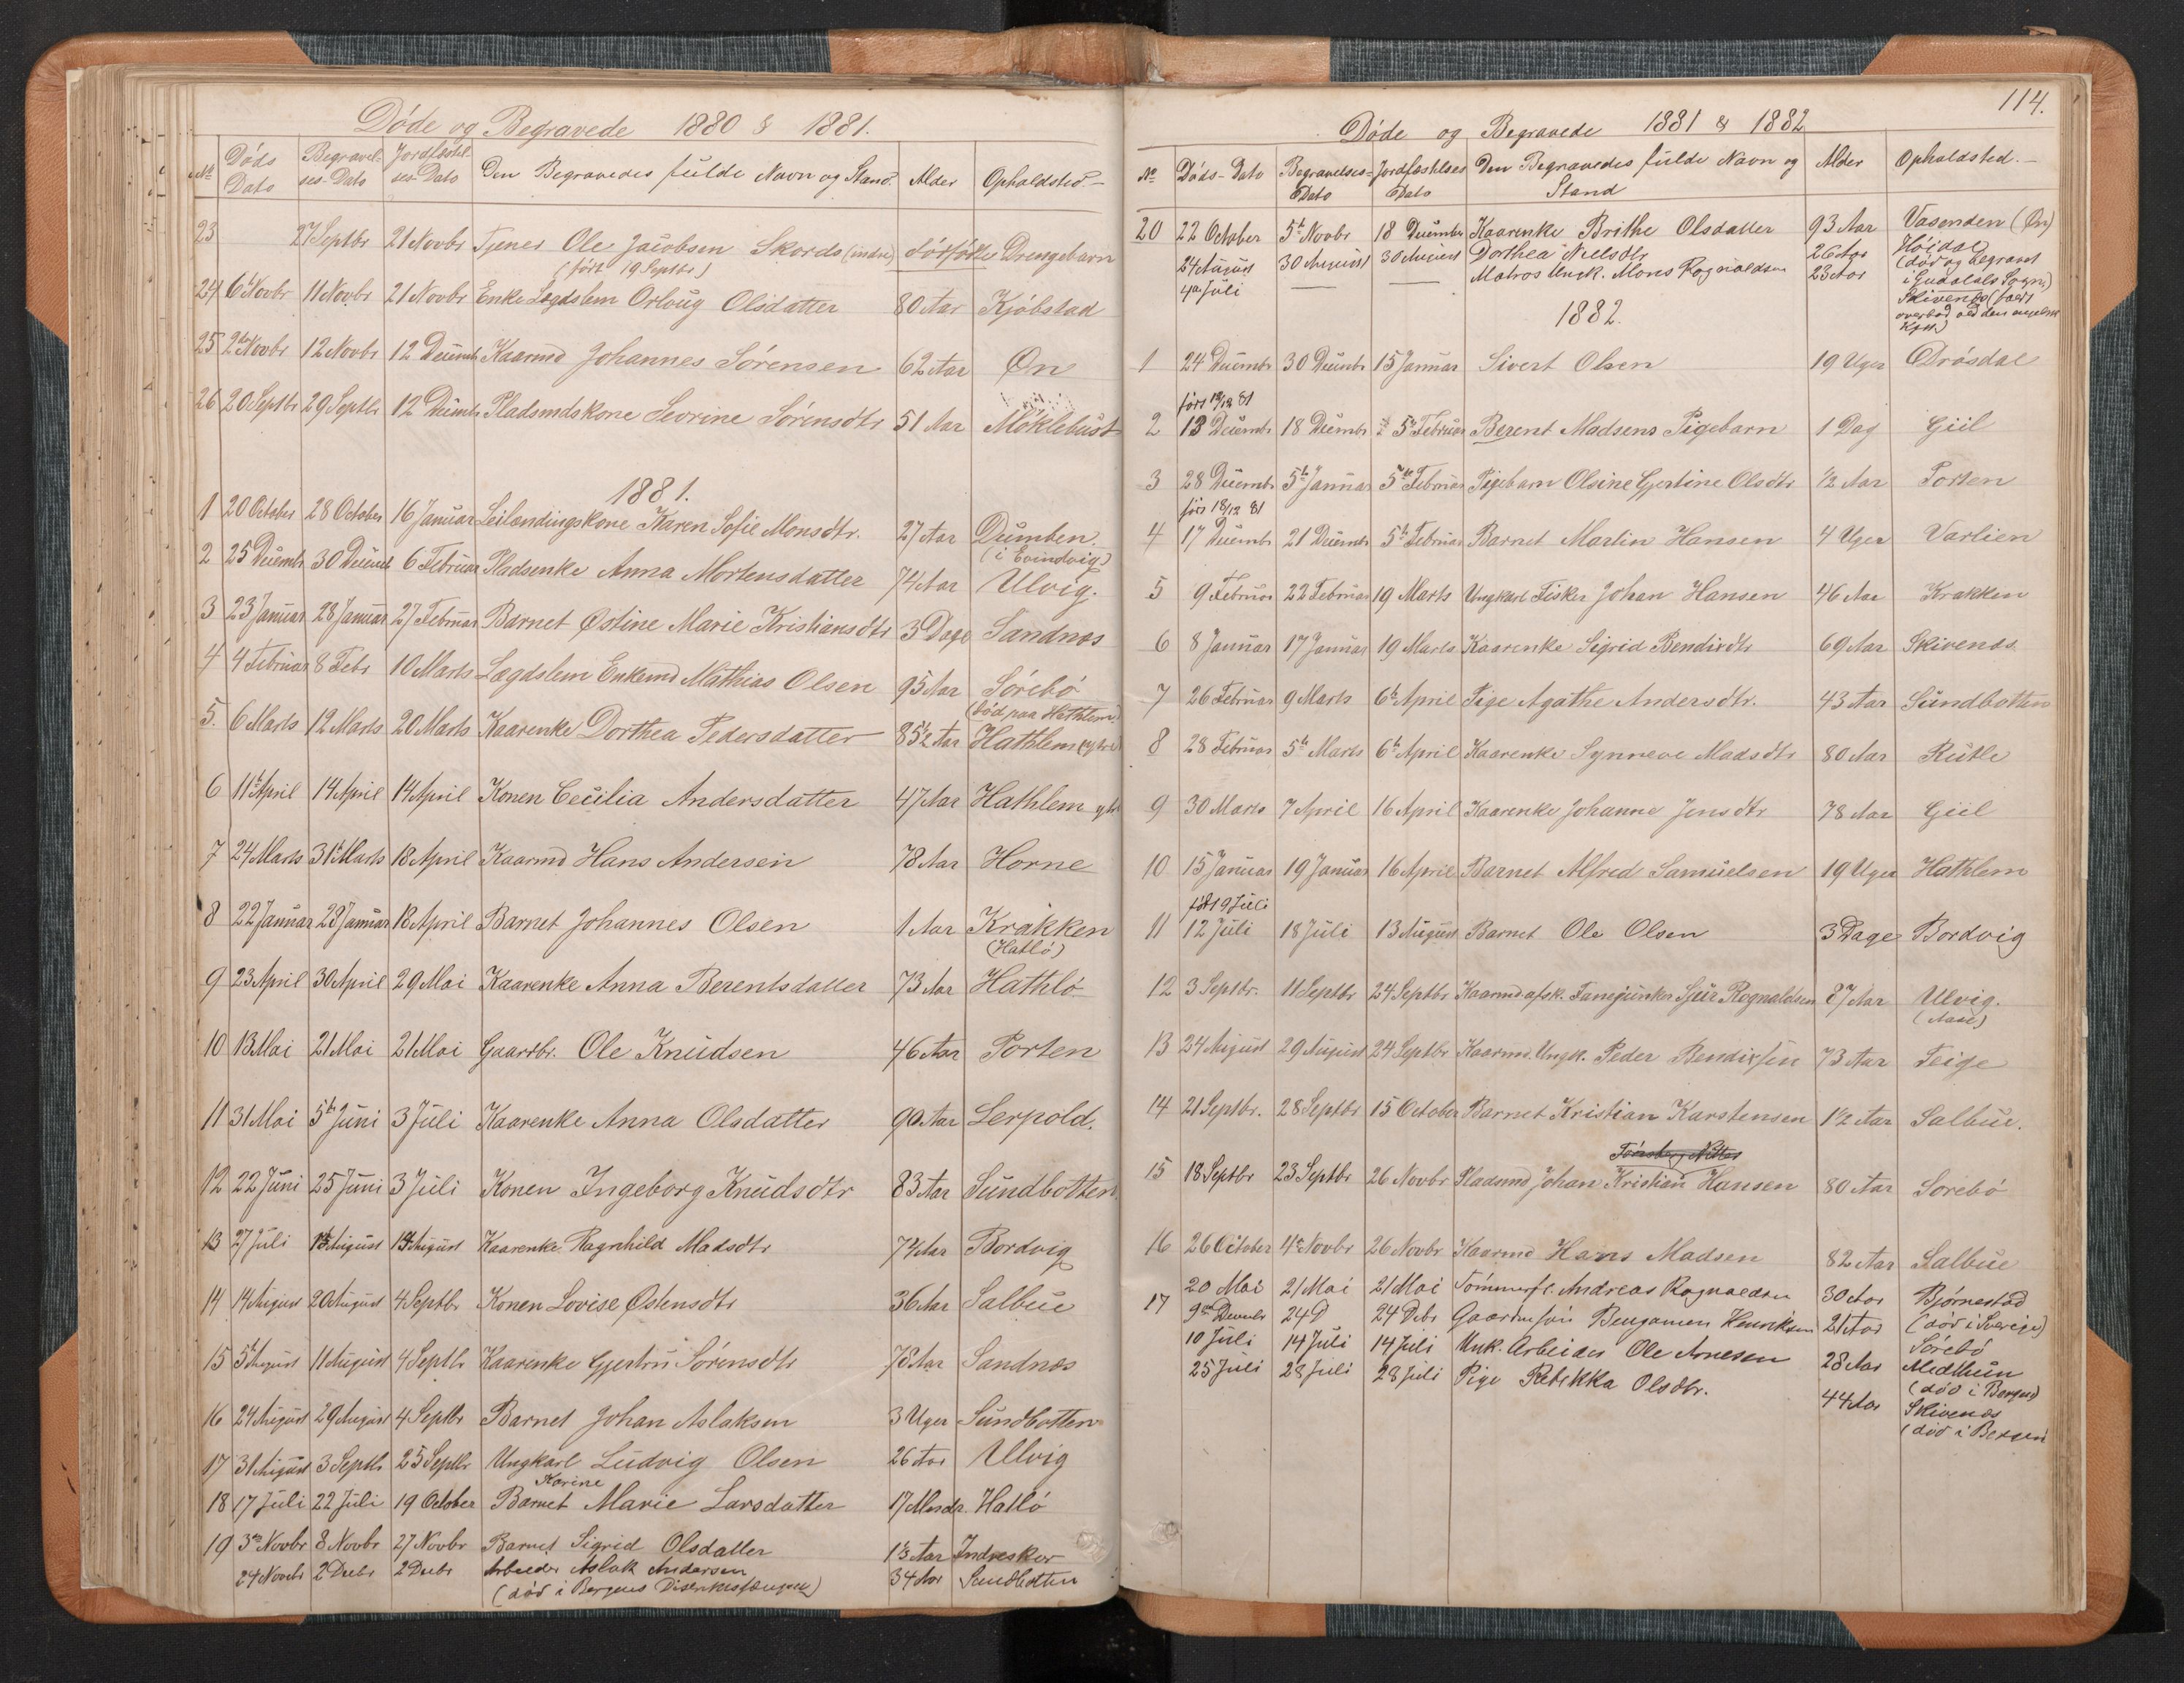 Døde og Begravede 1880 & 1881.
No Døds Dato Begravelses-Dato Jordfæstelses-Dato Den Begravedes fulde Navn og Stand. Alder Opholdsted.
23 27 Septbr 21 Novbr Tjener Ole Jacobsen Skords (indre) dødfødte Drengebarn
(født 19 Septbr)
24 6te Novbr 11 Novbr 21 Novbr Enke Lægdslem Orloug Olsdatter 80 Aar Kjøbstad
25 2den Novbr 12 Novbr 12 Decembr Kaarmd Johannes Sørensen 62 Aar Øn
26 20 Septbr 29 Septbr 12 Decembr Pladsmdskone Severine Sørensdtr 51 Aar Møklebust
1881.
1 20 October 28 October 16 Januar Leilændingskone Karen Sofie Monsdtr. 27 Aar Dumben.
(i Evindvig)
2 25 Decembr 30 Decembr 6 Februar Pladsenke Anna Mortensdatter 74 Aar Ulvig.
3 23 Januar 28 Januar 27 Februar Barnet Østine Marie Kristiansdtr 3 Dage Sandnæs
4 4 Februar 8 Febr 10 Marts Lægdslem Enkemd Mathias Olsen 95 Aar Sørebø
(død paa Hathlem)
5. 6 Marts 12 Marts 20 Marts Kaarenke Dorthea Pedersdatter 85½ Aar Hathlem (ytre)
6 11te April 14 April 14 April Konen Cecilia Andersdatter 47 Aar Hathlem ytre
7 24 Marts 31te Marts 18 April Kaarmd Hans Andersen 78 Aar Horne
8 22 Januar 28 Januar 18 April Barnet Johannes Olsen 1 Aar Krakken
(Hatlø)
9 23 April 30 April 29 Mai Kaarenke Anna Berentsdatter 73 Aar Hathlø
10 13 Mai 21 Mai 21 Mai Gaardbr. Ole Knudsen 46 Aar Porten
11 31 Mai 5te Juni 3 Juli Kaarenke Anna Olsdatter 90 Aar Lerpold.
12 22 Juni 25 Juni 3 Juli Konen Ingeborg Knudsdtr 83 Aar Sundbotten
13 27 Juli August 14 August Kaarenke Ragnhild Madsdtr 74 Aar Bordvig
14 14 August 20 August 4 Septbr Konen Lovise Østensdtr 36 Aar Salbue
15 5te August 11 August 4 Septbr Kaarenke Gjertru Sørensdtr 78 Aar Sandnæs
16 24 August 29 August 4 Septbr Barnet Johan Aslaksen 3 Uger Sundbotten
17 31 August 3 Septbr 25 Septbr Ungkarl Ludvig Olsen 26 Aar Ulvig
Karine
18 17 Juli 22 Juli 19 October Barnet Marie Larsdatter 17 Mndr. Hatlø
19 3die Novbr 8 Novbr 27 Novbr Barnet Sigrid Olsdatter 1½ Aar Indreskor
24 Novbr 2 Decbr 2 Decbr Arbeider Aslak Andersen 34 Aar Sundbotten
(død i Bergens)
114.
Døde og Begravede 1881 & 1882
No Døds-Dato Begravelses-Dato Jordfæstelses Dato Den Begravedes fulde Navn og Stand Alder Opholdsted.
20 22 October 5te Novbr 18 Decembr Kaarenke Brithe Olsdatter 93 Aar Vasenden (Øn)
24 August 30 August 30 August Dorthea Nielsdtr 26 Aar Høidal
(død og begravet i Guddals Sogn)
4de Juli Matros Ungk. Mons Rognaldsen 23 Aar Skivenæs (faldt overbord ved den engelske Kyst)
1882.
1 24 Decembr 30 Decembr 15 Januar Sivert Olsen 19 Uger Drøsdal
født 12/12 81
2 13 Decembr 18 Decembr 5te Februar Berent Madsens Pigebarn 1 Dag Giil
3 28 Decembr 5te Januar 5te Februar Pigebarn Olsine Gjertine Olsdtr ½ Aar Porten
født 18/12 81
4 17 Decembr 21 Decembr 5te Februar Barnet Martin Hansen 4 Uger Varlien
5 9 Februar 22 Februar 19 Marts Ungkarl Fisker Johan Hansen 46 Aar Krakken
6 8 Januar 17 Januar 19 Marts Kaarenke Sigrid Bendixdtr 69 Aar Skivenæs
7 26 Februar 9 Marts 6te April Pige Agathe Andersdtr. 43 Aar Sundbotten
8 28 Februar 5te Marts 6te April Kaarenke Synneve Madsdtr 80 Aar Rutle
9 30 Marts 7 April 16 April Kaarenke Johanne Jensdtr 78 Aar Giil
10 15 Januar 19 Januar 16 April Barnet Alfred Samuelsen 19 Uger Hathlem
født 9 Juli
11 12 Juli 18 Juli 13 August Barnet Ole Olsen 3 Dage Bordvig
12 3 Septbr. 11 Septbr 24 Septbr Kaarmd afsk. Fanejunker Sjur Rognaldsen 87 Aar Ulvig.
(Aase)
13 24 August 29 August 24 Septbr Kaarmd. Ungk. Peder Bendixsen 73 Aar Teige
14 21 Septbr. 28 Septbr 15 October Barnet Kristian Karstensen 1½ Aar Salbue.
15 18 Septbr 23 Septbr 26 Novbr Pladsmd Johan Kristian Hansen 80 Aar Sørebø
16 26 October 4de Novbr 26 Novbr Kaarmd Hans Madsen 82 Aar Salbue
20 Mai 21 Mai 21 Mai Tømmerfl. Andreas Rognaldsen 30 Aar Bjørnestad
(død i Sverige)
17 9de Decembr 24 D 24 Debr Gaardmsøn Benjamen Henriksen 21 Aar Sørebø
10 Juli 14 Juli 14 Juli Unk. Arbeider Ole Arnesen 28 Aar Midthun
(død i Bergen)
25 Juli 28 Juli 28 Juli Pige Rebekka Olsdtr. 44 Aar Skivenæs
(død i Bergen